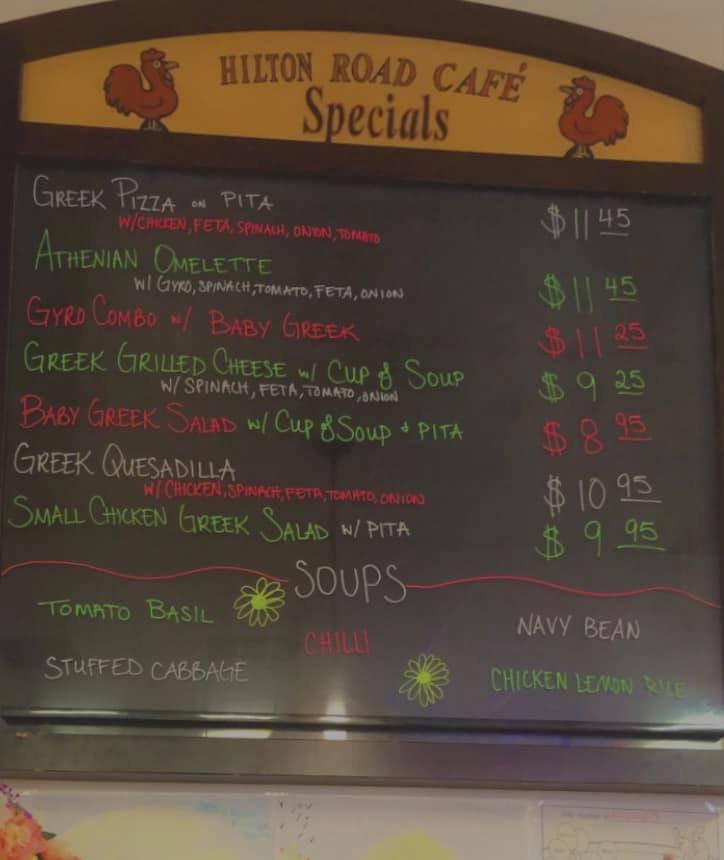 HILTON ROAD CAFÉ
Specials
GREEK PIZZA ON PITA $11 45
W/CHICKEN, FETA, SPINACH, ONION, TOMATO
ATHENIAN OMELETTE $11 45
W/ GYRO, SPINACH, TOMATO, FETA, ONION
GYRO COMBO W/ BABY GREEK $11 25
GREEK GRILLED CHEESE W/ CUP of SOUP $9 25
W/ SPINACH, FETA, TOMATO, ONION
BABY GREEK SALAD W/ CUP of SOUP + PITA $8 95
GREEK QUESADILLA $10 95
W/ CHICKEN, SPINACH, FETA, TOMATO, ONION
SMALL CHICKEN GREEK SALAD W/ PITA $9 95
SOUPS
TOMATO BASIL
CHILLI
NAVY BEAN
STUFFED CABBAGE
CHICKEN LEMON RICE